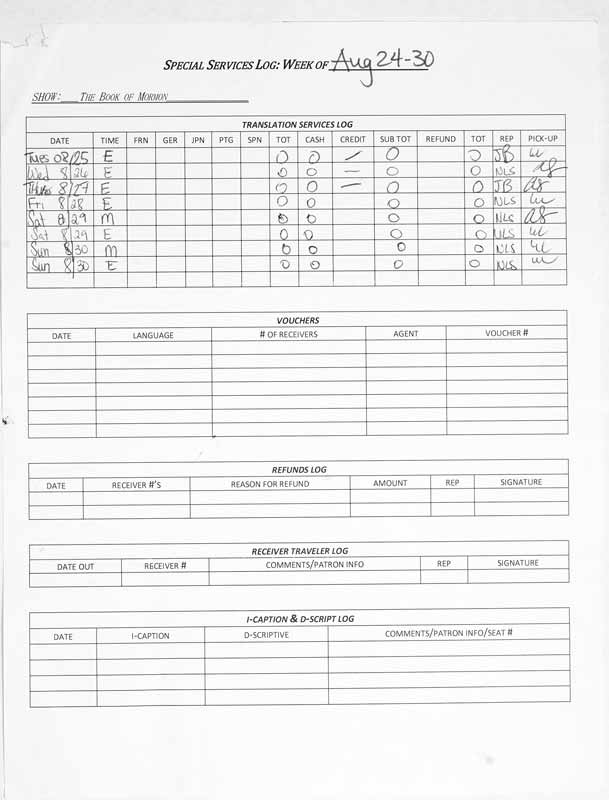 SPECIAL SERVICES LOG: WEEK OF Aug 24-30
SHOW: THE BOOK OF MORMON
TRANSLATION SERVICES LOG
DATE TIME FRN GER JPN PTG SPN TOT CASH CREDIT SUB TOT REFUND TOT REP PICK-UP
Tues 08/25 E 0 0 — 0 0 JB
Wed 8/26 E 0 0 — 0 0 NLS
Thurs 8/27 E 0 0 — 0 0 JB
Fri 8/28 E 0 0 0 0 NLS
Sat 8/29 M 0 0 0 0 NLS
Sat 8/29 E 0 0 0 0 NLS
Sun 8/30 M 0 0 0 0 NLS
Sun 8/30 E 0 0 0 0 NLS
VOUCHERS
DATE LANGUAGE # OF RECEIVERS AGENT VOUCHER #
REFUNDS LOG
DATE RECEIVER #'S REASON FOR REFUND AMOUNT REP SIGNATURE
RECEIVER TRAVELER LOG
DATE OUT RECEIVER # COMMENTS/PATRON INFO REP SIGNATURE
I-CAPTION & D-SCRIPT LOG
DATE I-CAPTION D-SCRIPTIVE COMMENTS/PATRON INFO/SEAT #